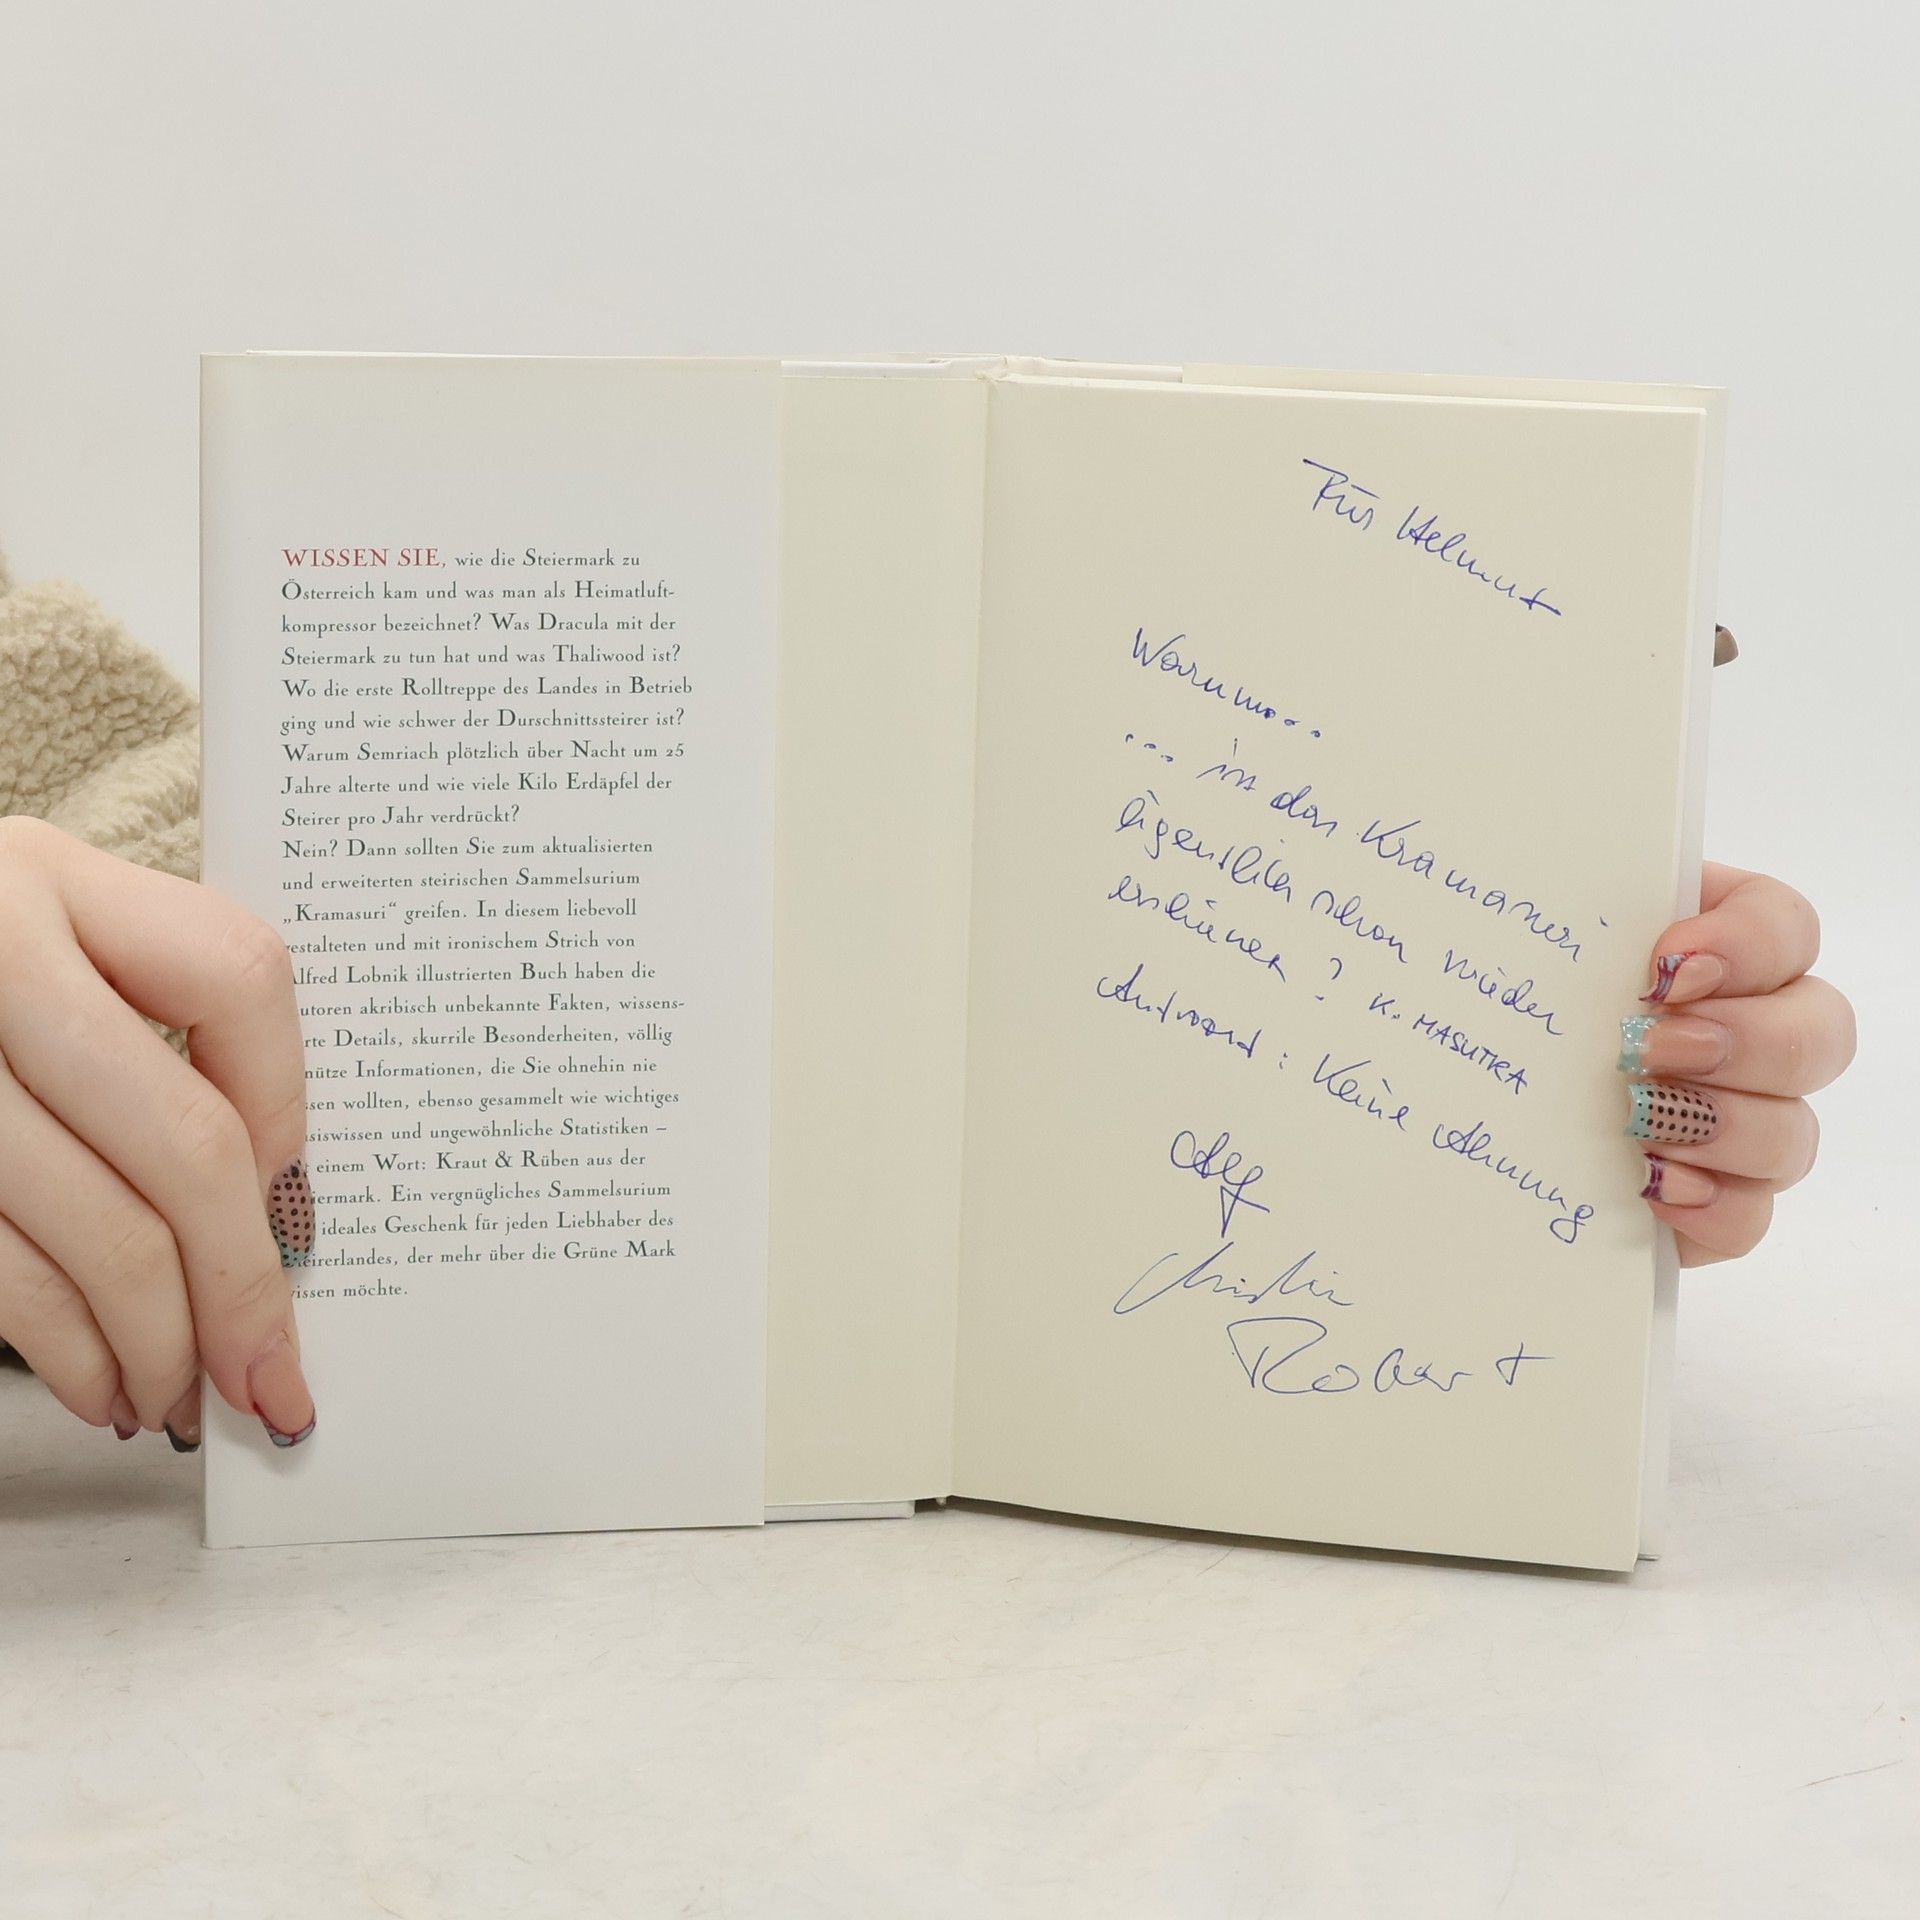 WISSEN SIE, wie die Steiermark zu
Österreich kam und was man als Heimatluft-
kompressor bezeichnet? Was Dracula mit der
Steiermark zu tun hat und was Thaliwood ist?
Wo die erste Rolltreppe des Landes in Betrieb
ging und wie schwer der Durschnittssteirer ist?
Warum Semriach plötzlich über Nacht um 25
Jahre alterte und wie viele Kilo Erdäpfel der
Steirer pro Jahr verdrückt?
Nein? Dann sollten Sie zum aktualisierten
und erweiterten steirischen Sammelsurium
„Kramasuri“ greifen. In diesem liebevoll
estalteten und mit ironischem Strich von
lfred Lobnik illustrierten Buch haben die
utoren akribisch unbekannte Fakten, wissens-
rte Details, skurrile Besonderheiten, völlig
nütze Informationen, die Sie ohnehin nie
ssen wollten, ebenso gesammelt wie wichtiges
siswissen und ungewöhnliche Statistiken –
einem Wort: Kraut & Rüben aus der
iermark. Ein vergnügliches Sammelsurium
ideales Geschenk für jeden Liebhaber des
eirerlandes, der mehr über die Grüne Mark
issen möchte.
Für Helmut
Warum...
... ist das Kramasuri
eigentlich schon wieder
erschienen? K. MASUTRA
Antwort: Keine Ahnung
Alf
Christian
Robert